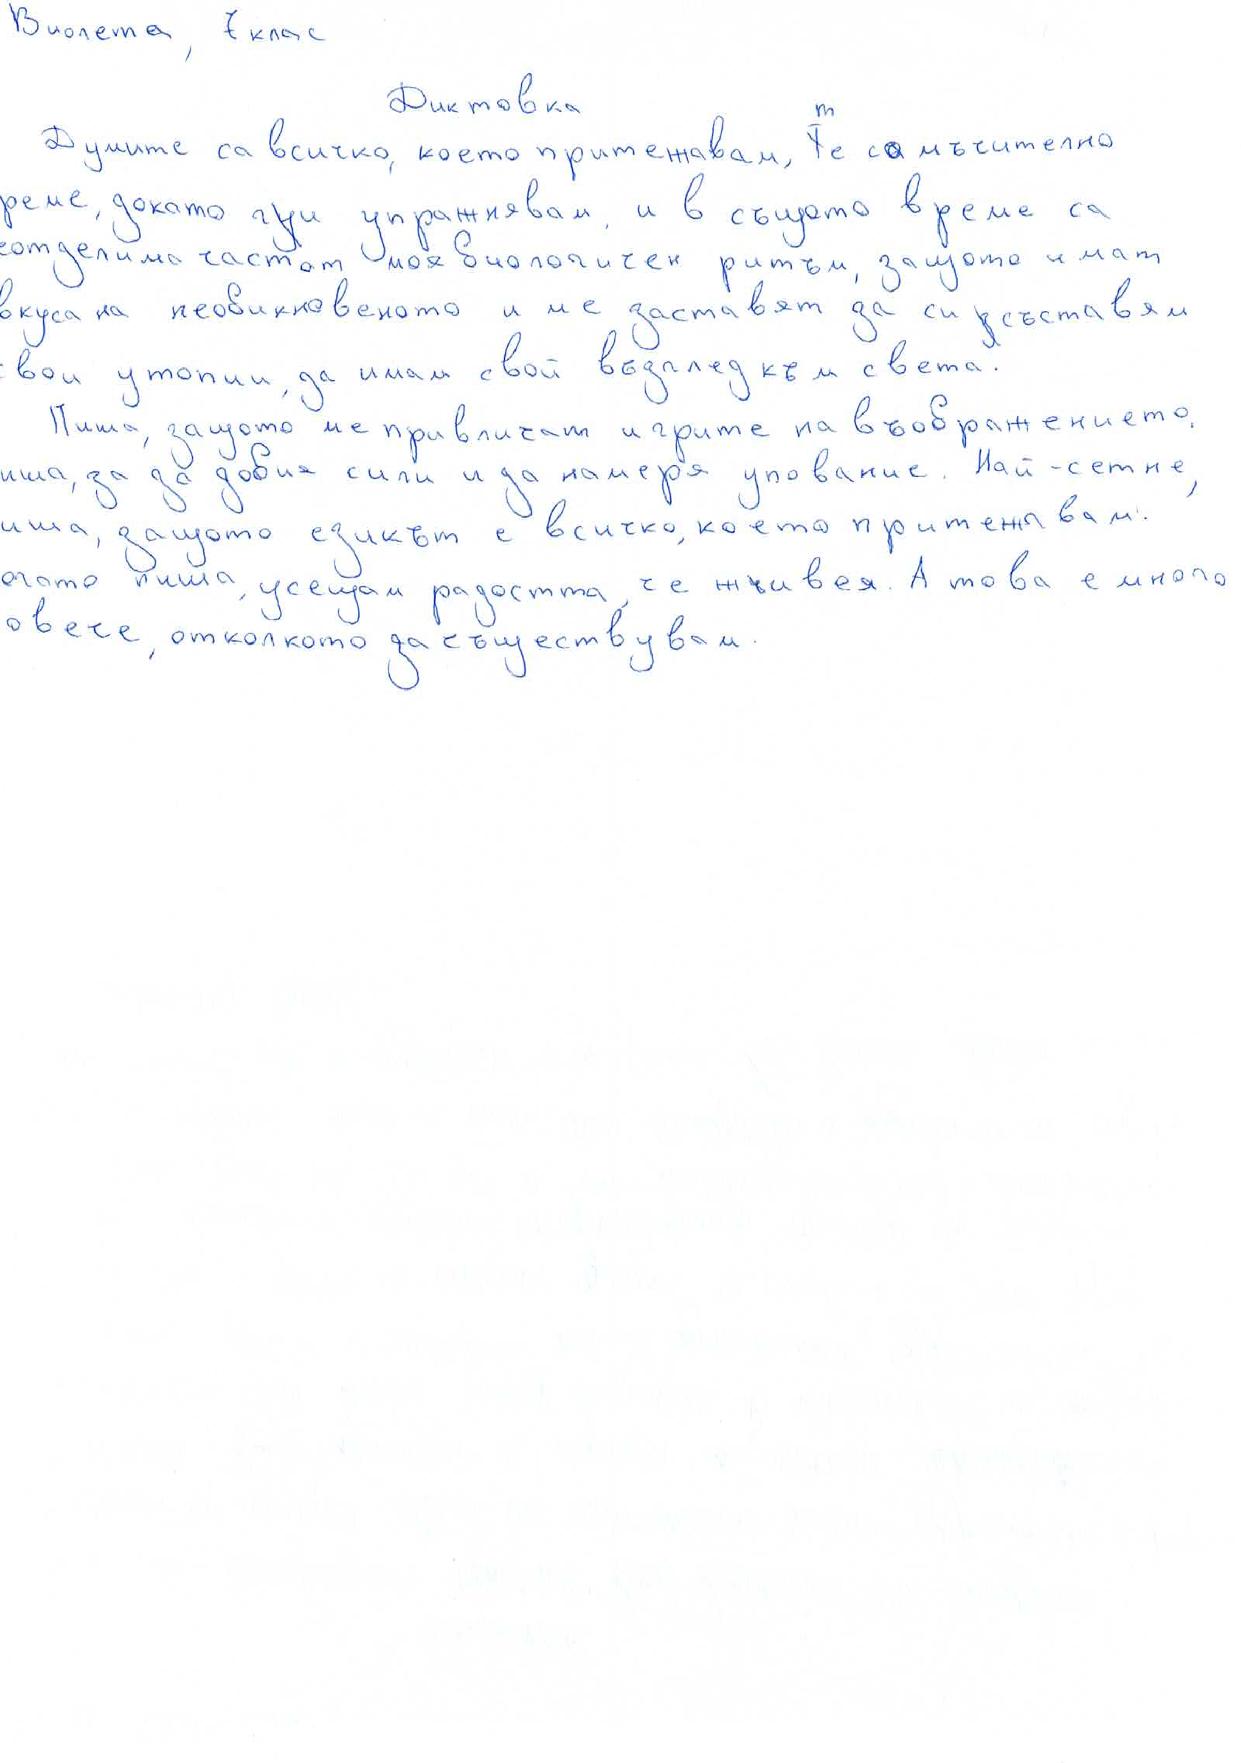 Виолета, 7 клас
Диктовка
Думите са всичко, което притежавам, те са мъчително
реме, докато ги упражнявам, и в същото време са
еотделима част от моя биологичен ритъм, защото имат
вкуса на необикновеното и ме заставят да си съставям
свои утопии, да имам свой възглед към света.
Пиша, защото ме привличат игрите на въображението,
иша, за да добия сили и да намеря упование. Най-сетне,
иша, защото езикът е всичко, което притежавам.
огато пиша, усещам радостта, че живея. А това е много
овече, отколкото да съществувам.